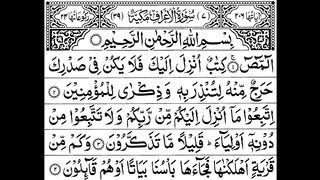 اٰیَاتُهَا ٢٠٦ (٧) سُوْرَةُ الْاَعْرَافِ مَكِّیَّةٌ (٣٩) رُكُوْعَاتُهَا ٢٤
بِسْمِ اللّٰهِ الرَّحْمٰنِ الرَّحِیْمِ
الٓمّٓصٓ ۝١ كِتٰبٌ اُنْزِلَ اِلَیْكَ فَلَا یَكُنْ فِیْ صَدْرِكَ
حَرَجٌ مِّنْهُ لِتُنْذِرَ بِهٖ وَ ذِكْرٰی لِلْمُؤْمِنِیْنَ ۝٢
اِتَّبِعُوْا مَاۤ اُنْزِلَ اِلَیْكُمْ مِّنْ رَّبِّكُمْ وَلَا تَتَّبِعُوْا مِنْ
دُوْنِهٖۤ اَوْلِیَآءَ ؕ قَلِیْلًا مَّا تَذَكَّرُوْنَ ۝٣ وَكَمْ مِّنْ
قَرْیَةٍ اَهْلَكْنٰهَا فَجَآءَهَا بَاْسُنَا بَیَاتًا اَوْ هُمْ قَآئِلُوْنَ ۝٤